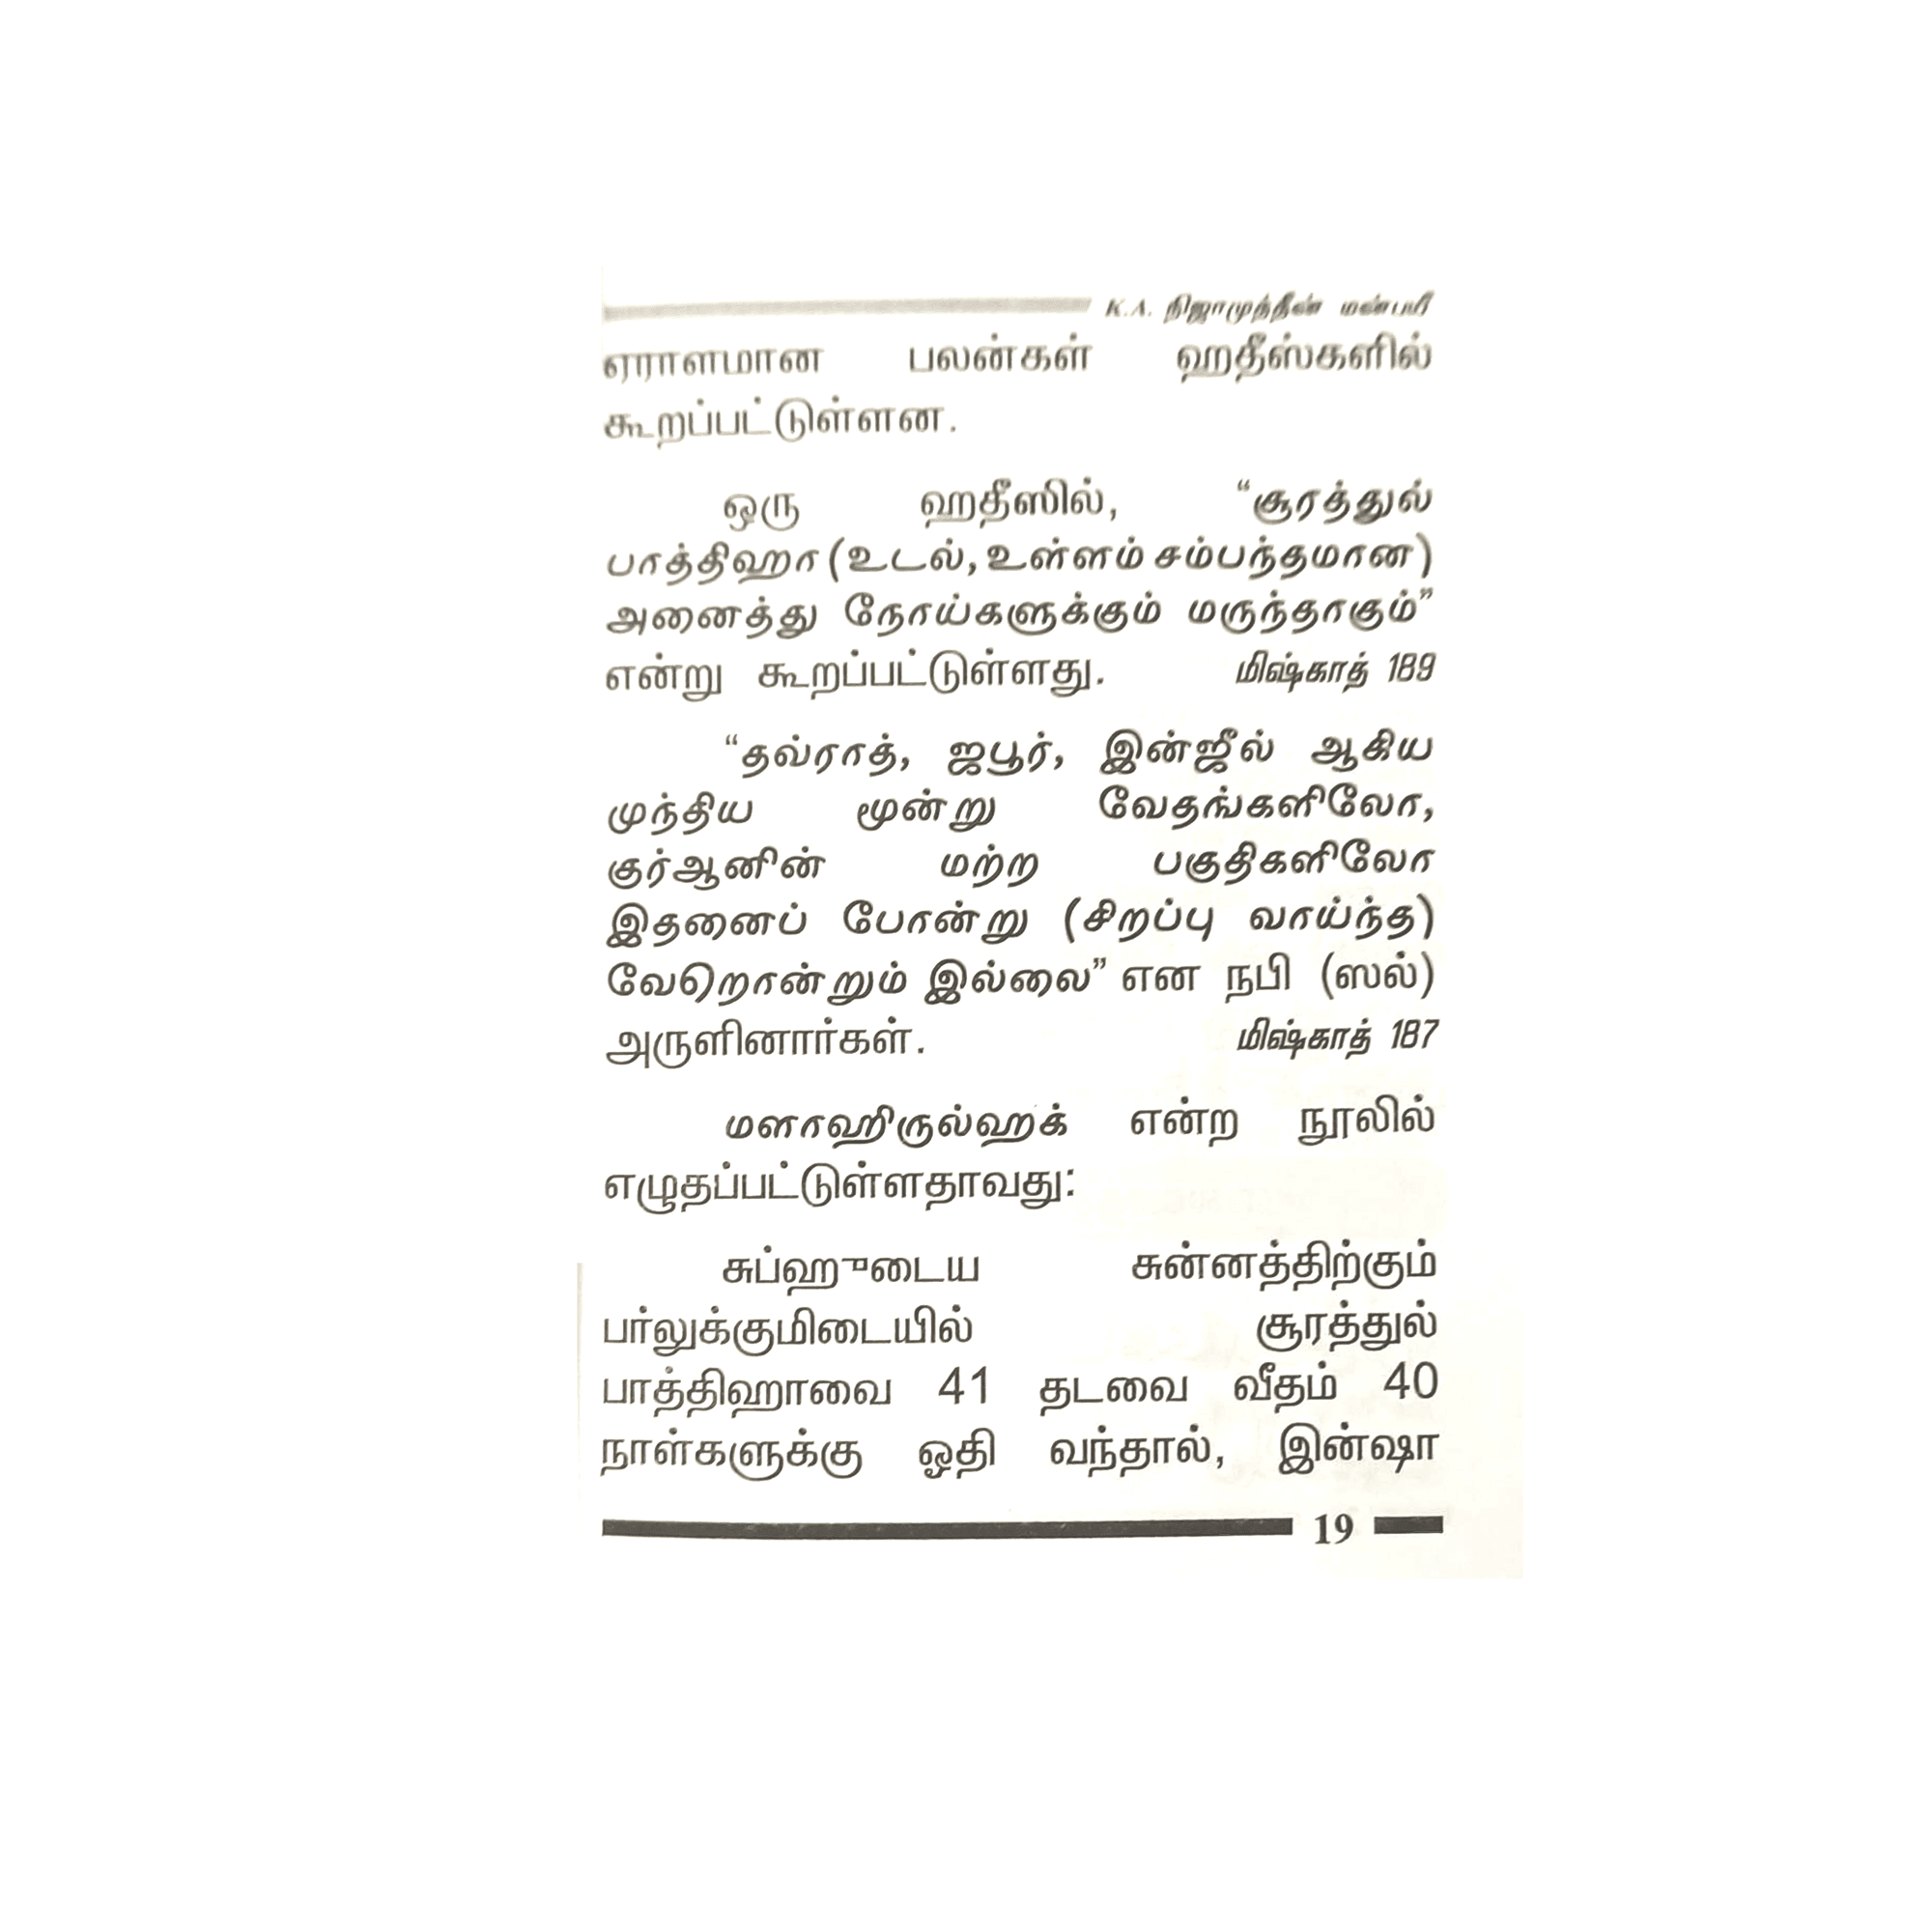 K.A. நிஜாமுத்தீன் மன்பயீ
ஏராளமான பலன்கள் ஹதீஸ்களில்
கூறப்பட்டுள்ளன.
ஒரு ஹதீஸில், “சூரத்துல்
பாத்திஹா (உடல், உள்ளம் சம்பந்தமான)
அனைத்து நோய்களுக்கும் மருந்தாகும்”
என்று கூறப்பட்டுள்ளது. மிஷ்காத் 189
“தவ்ராத், ஜபூர், இன்ஜீல் ஆகிய
முந்திய மூன்று வேதங்களிலோ,
குர்ஆனின் மற்ற பகுதிகளிலோ
இதனைப் போன்று (சிறப்பு வாய்ந்த)
வேறொன்றும் இல்லை” என நபி (ஸல்)
அருளினார்கள். மிஷ்காத் 187
மளாஹிருல்ஹக் என்ற நூலில்
எழுதப்பட்டுள்ளதாவது:
சுப்ஹுடைய சுன்னத்திற்கும்
பர்லுக்குமிடையில் சூரத்துல்
பாத்திஹாவை 41 தடவை வீதம் 40
நாள்களுக்கு ஓதி வந்தால், இன்ஷா
19